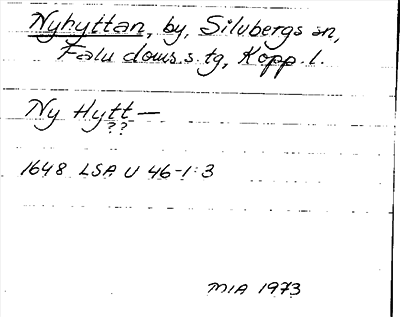 Nyhyttan, by, Silvbergs sn,
Falu doms.s. tg, Kopp. l.
Ny Hytt—
??
1648 LSA U 46-1:3
MIA 1973